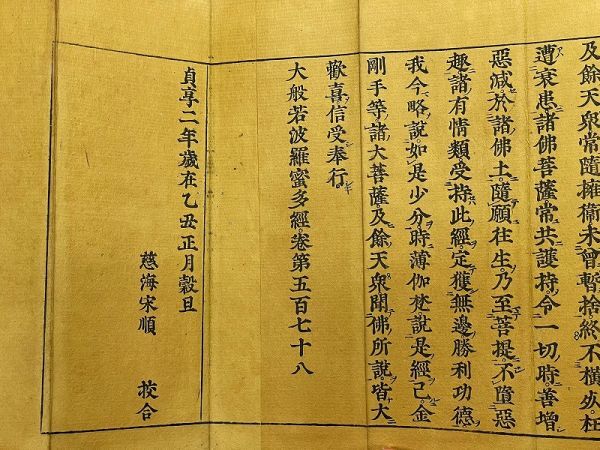 及餘天衆常隨擁衞未曾暫捨終不横夭枉
遭衰患諸佛菩薩常共護持令一切時善增
惡減於諸佛土隨願往生乃至菩提不墮惡
趣諸有情類受持此經定獲無邊勝利功德
我今略說如是少分時薄伽梵說是經已金
剛手等諸大菩薩及餘天衆聞佛所說皆大
歡喜信受奉行
大般若波羅蜜多經卷第五百七十八
貞享二年歲在乙丑正月穀旦
慈海宋順 挍合